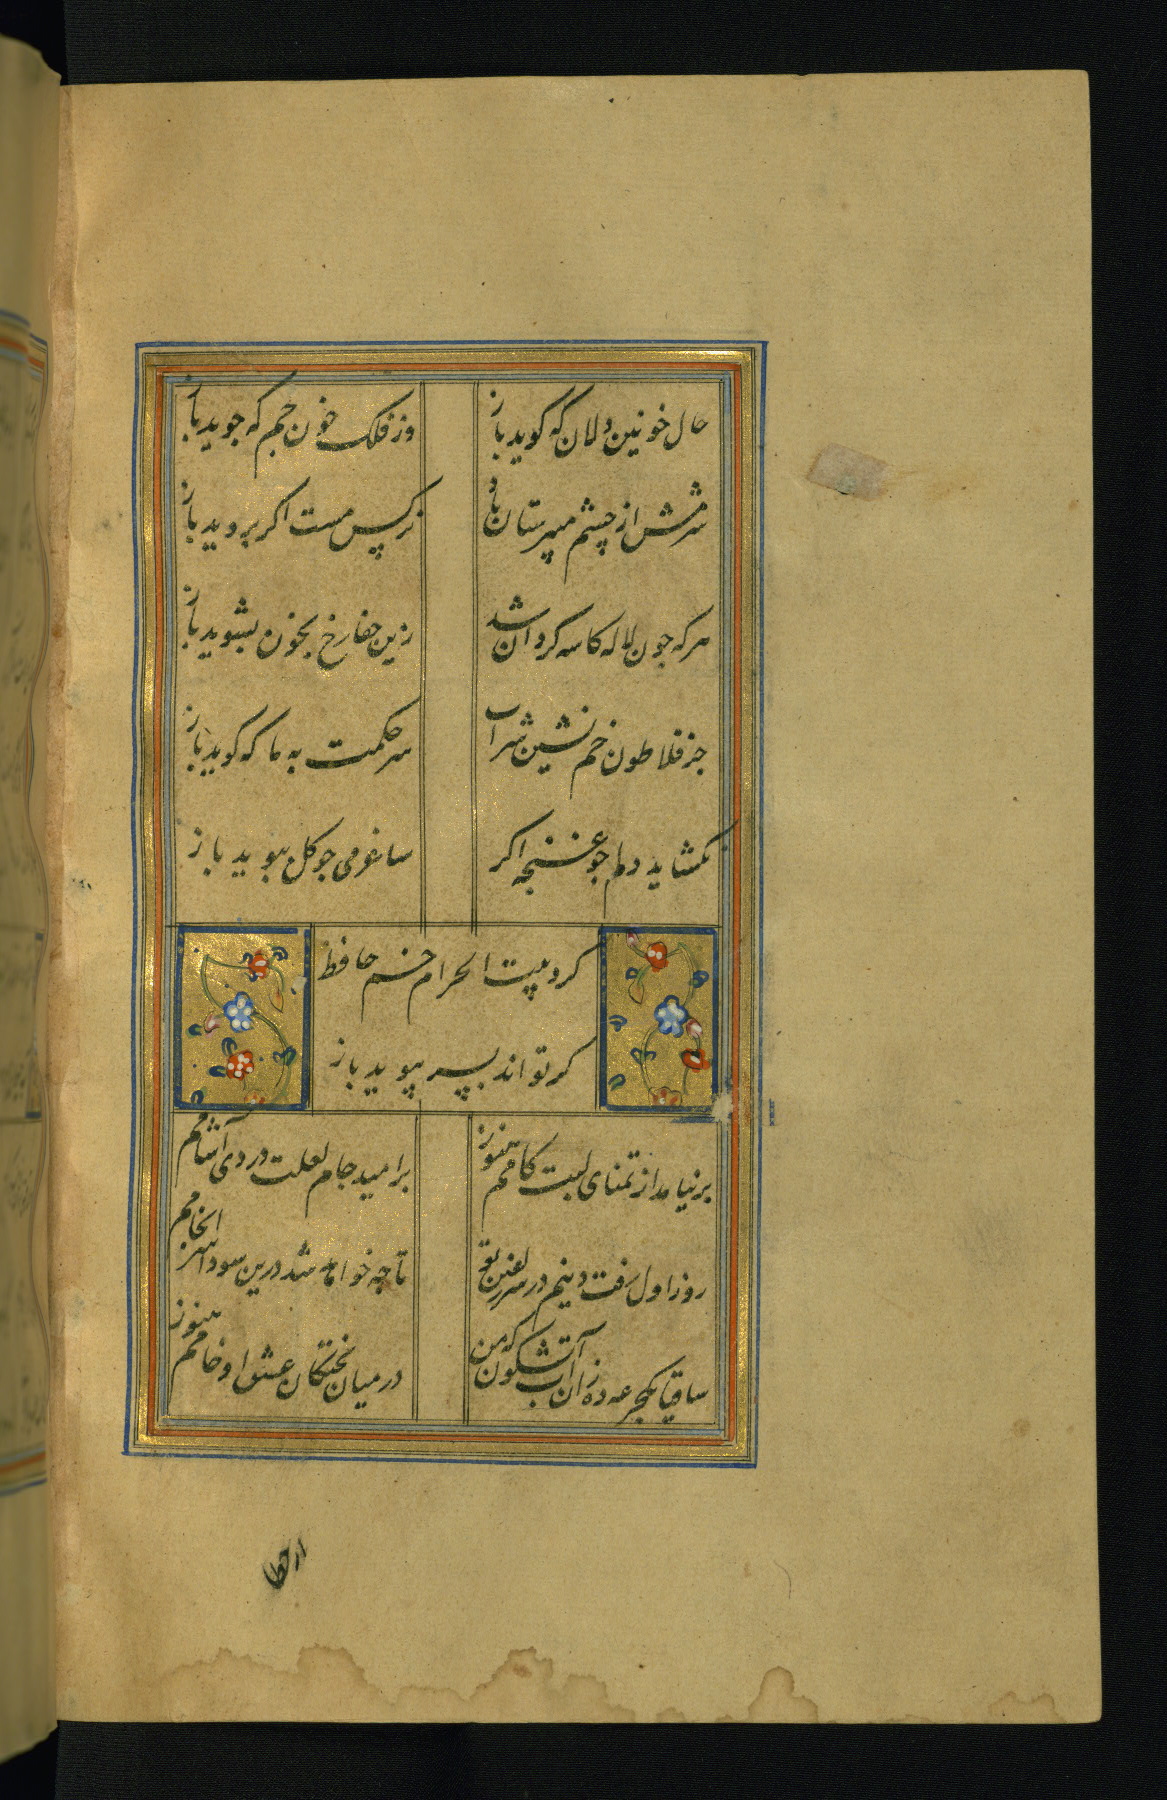 حال خونین دلان که کوید باز
وز فلک خون جم که جوید باز
شرمش از چشم میپرستان باد
نرکس مست اکر بروید باز
هرکه جون لاله کاسه کردان شد
زین جفا رخ بخون بشوید باز
جز فلاطون خم نشین شراب
سر حکمت به ما که کوید باز
نکشاید دلم جو غنجه اکر
ساغر می جو کل ببوید باز
کرد بیت الحرام خم حافظ
کر تواند بسر بپوید باز
برنیامد از تمنای لبت کامم هنوز
بر امید جام لعلت دردی آشامم
روز اول رفت دینم در سر زلفین تو
تا چه خواهد شد درین سودا سر انجامم
ساقیا یکجرعه ده زان آب آتشکون که من
در میان پختکان عشق او خامم هنوز
از خطا